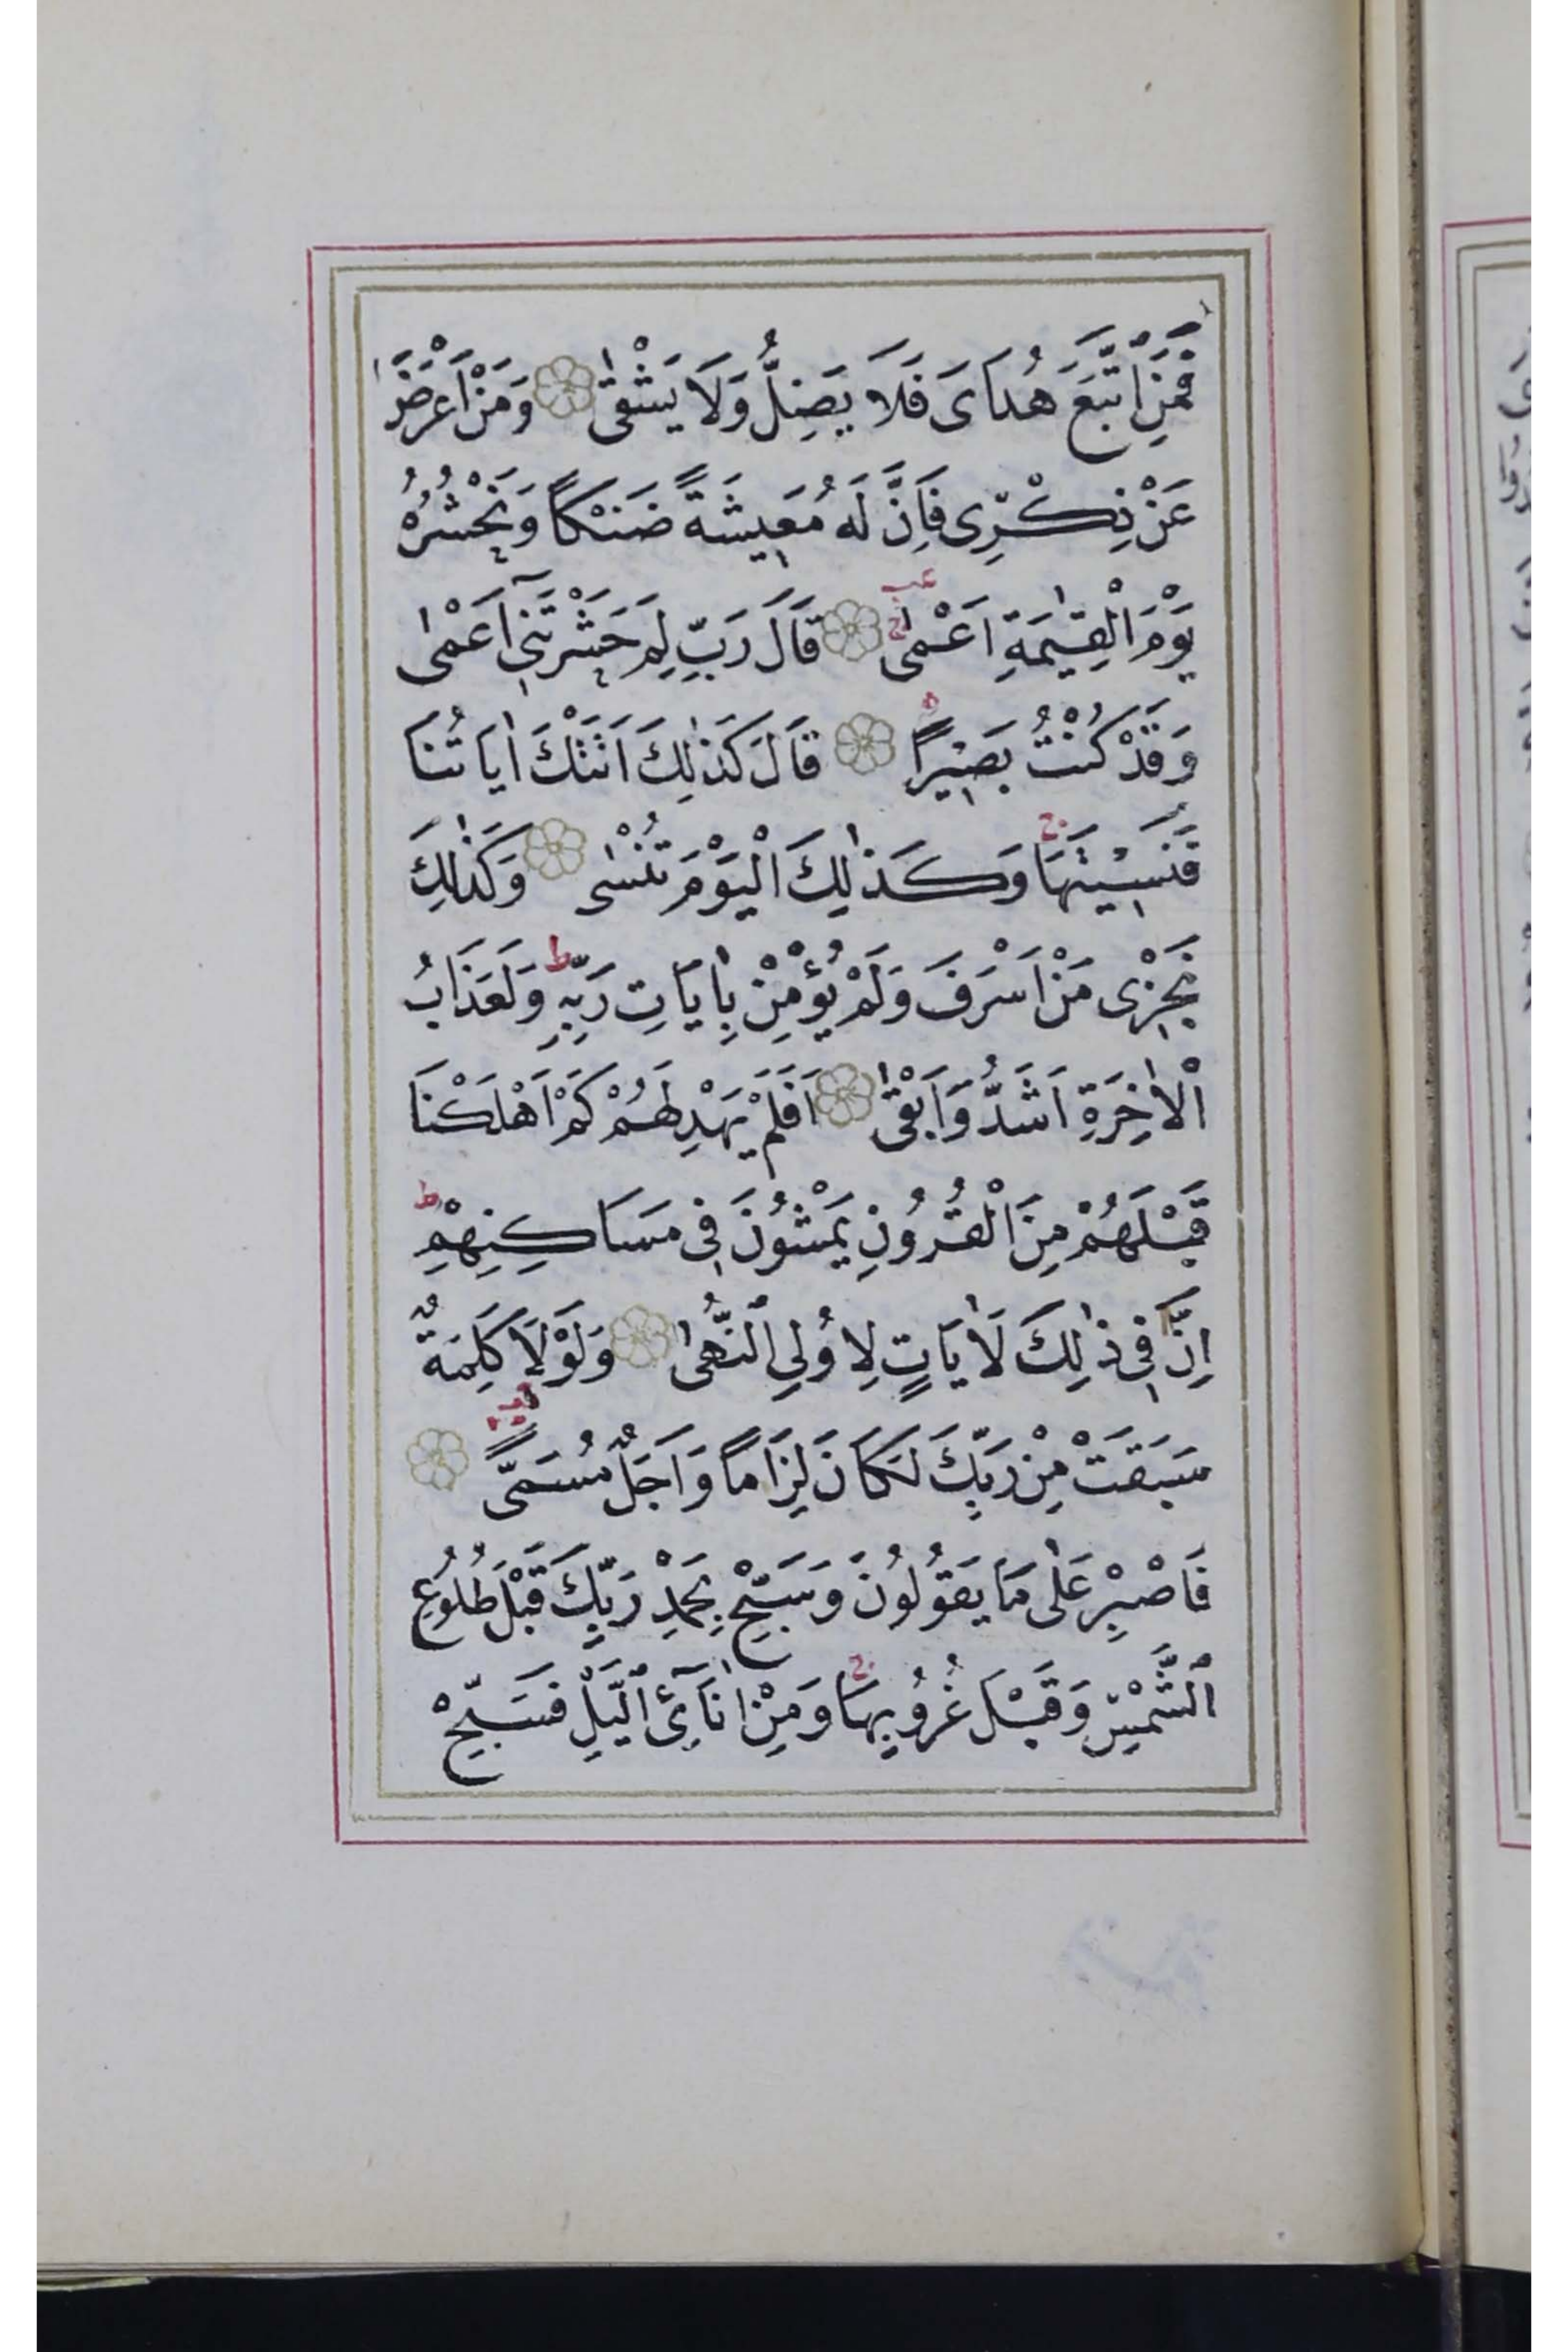 فَمَنِ اتَّبَعَ هُدَاىَ فَلَا يَضِلُّ وَلَا يَشْقٰى وَمَنْ اَعْرَضَ
عَنْ ذِكْرِى فَاِنَّ لَهُ مَعِيشَةً ضَنْكًا وَنَحْشُرُهُ
يَوْمَ الْقِيٰمَةِ اَعْمٰى قَالَ رَبِّ لِمَ حَشَرْتَنِىٓ اَعْمٰى
وَقَدْ كُنْتُ بَصِيرًا قَالَ كَذٰلِكَ اَتَتْكَ اٰيَاتُنَا
فَنَسِيتَهَا وَكَذٰلِكَ الْيَوْمَ تُنْسٰى وَكَذٰلِكَ
نَجْزِى مَنْ اَسْرَفَ وَلَمْ يُؤْمِنْ بِاٰيَاتِ رَبِّهِ وَلَعَذَابُ
الْاٰخِرَةِ اَشَدُّ وَاَبْقٰى اَفَلَمْ يَهْدِ لَهُمْ كَمْ اَهْلَكْنَا
قَبْلَهُمْ مِنَ الْقُرُونِ يَمْشُونَ فِى مَسَاكِنِهِمْ
اِنَّ فِى ذٰلِكَ لَاٰيَاتٍ لِاُولِى النُّهٰى وَلَوْلَا كَلِمَةٌ
سَبَقَتْ مِنْ رَبِّكَ لَكَانَ لِزَامًا وَاَجَلٌ مُسَمًّى
فَاصْبِرْ عَلٰى مَا يَقُولُونَ وَسَبِّحْ بِحَمْدِ رَبِّكَ قَبْلَ طُلُوعِ
الشَّمْسِ وَقَبْلَ غُرُوبِهَا وَمِنْ اٰنَآئِ الَّيْلِ فَسَبِّحْ